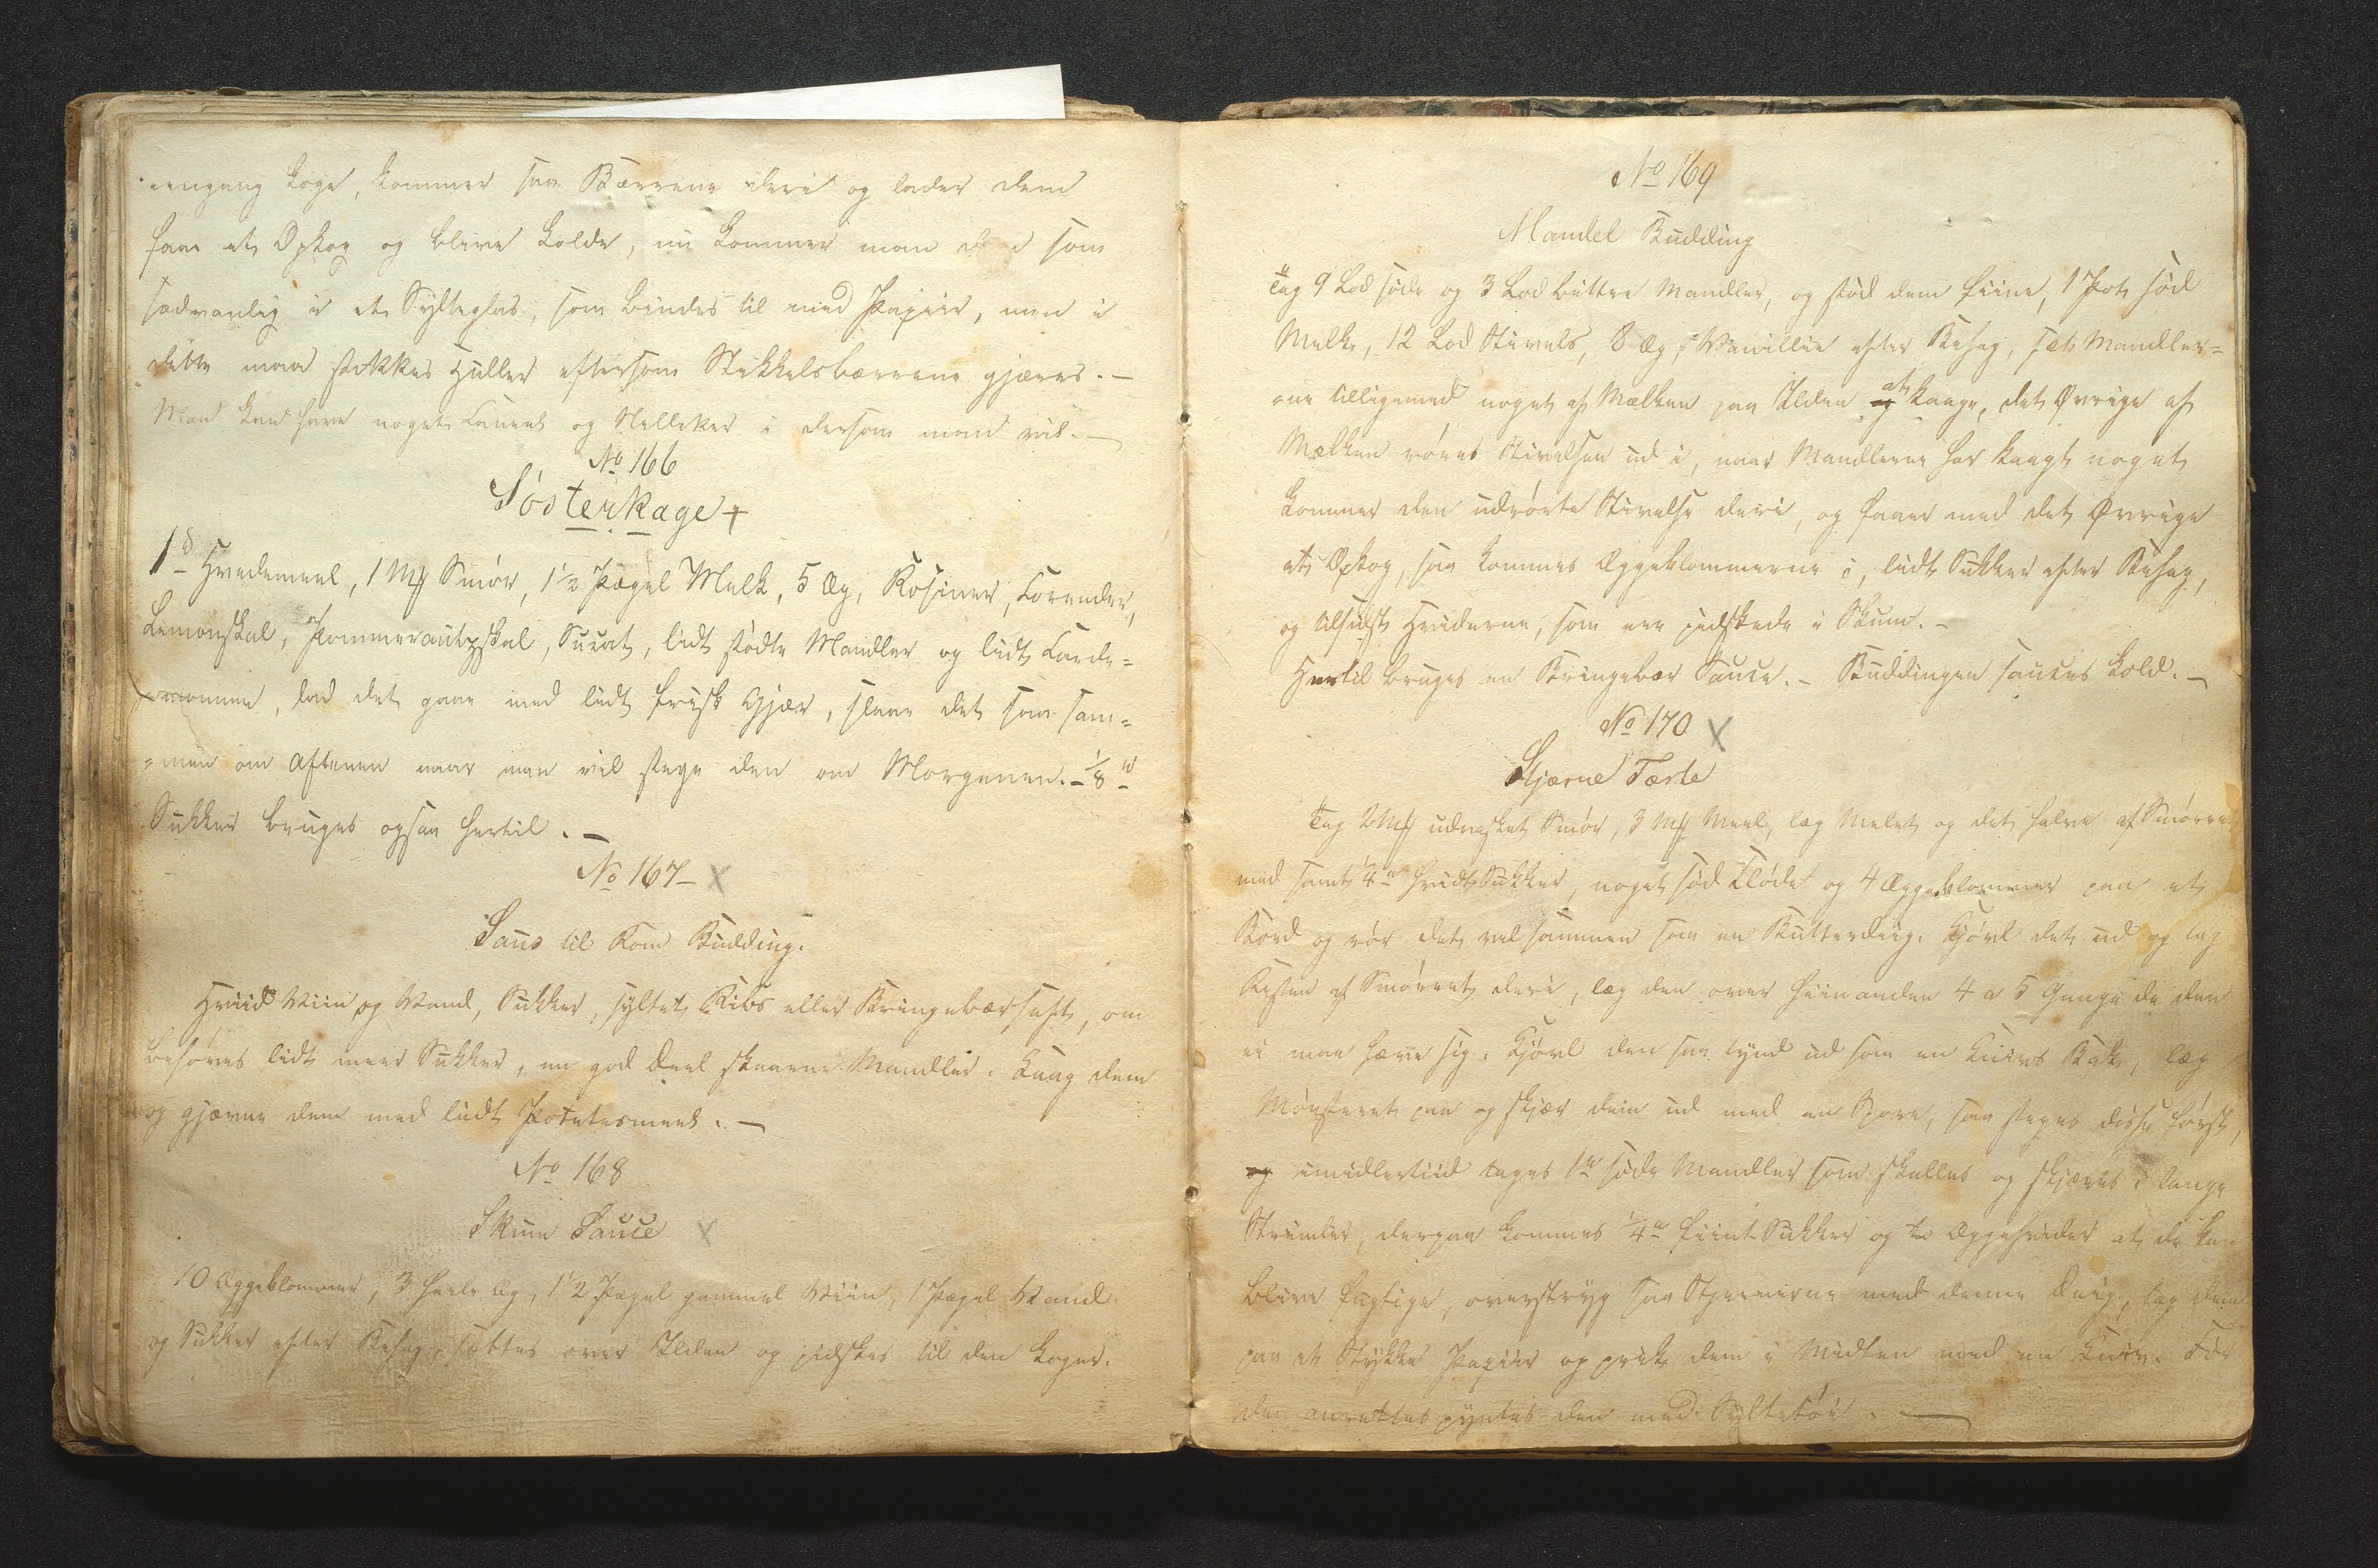 eengang koge, kommer saa Bærrene deri og lader dem
faae et Opkog og blive kolde, nu kommer man det som
sædvanlig i et Sylteglas, som bindes til med Papiir, men i
dette maa stikkes Huller eftersom Stikkelsbærrene gjæres. —
Man kan have noget Caneel og Nelleker i dersom man vil. —
No 166
Søsterkage +
1 ℔ Hvedemeel, 1 Mk Smør, 1½ Pægel Melk, 5 Æg, Rosiner, Corender,
Lemonskal, Pommerantzskal, Sucat, lidt stødte Mandler og lidt Carde=
momme, lad det gaae med lidt frisk Gjær, slaae det saa sam=
=men om Aftenen naar man vil stege den om Morgenen. – ⅛ ℔
Sukker bruges ogsaa hertil. —
No 167 – X
Saus til Rom Budding.
Hviid Viin og Vand, Sukker, syltet Ribs eller Bringebærsaft, om
behøves lidt meer Sukker, en god Deel skaarne Mandler. Kaag dem
og gjævne dem med lidt Potetesmeel. —
No 168
Skum Sauce X
10 Æggeblommer, 3 heele Æg, 1½ Pægel gammel Viin, 1 Pægel Vand
og Sukker efter Behag, sættes over Ilden og pidskes til den koger.
No 169
Mandel Budding
Tag 9 Lod søde og 3 Lod bittre Mandler, og stød dem fiine, 1 Pot sød
Melk, 12 Lod Stivels, 8 Æg, Vanillie efter Behag, sæt Mandler=
=ne tilligemed noget af Mælken paa Ilden at kaage, det Øvrige af
Mælken røres Stivelsen ud i, naar Mandlerne har kaagt noget
kommer den udrørte Stivelse deri, og faaer med det Øvrige
et Opkog, saa kommes Æggeblommerne i, lidt Sukker efter Behag,
og tilsidst Hviderne, som ere pidskede i Skum. –
Hertil bruges en Bringebær Sauce. – Buddingen sauces kold. —
No 170 X
Stjærne Tærte
Tag 2 Mk udvasket Smør, 3 Mk Meel, læg Melet og det halve af Smørret
med samt ¼ ℔ hvidt Sukker, noget sød Fløde og 4 Æggeblommer paa et
Bord og rør det vel sammen som en Butterdeig. Kjøvl det ud og læg
Resten af Smørret deri, læg den over hiinanden 4 a 5 Gange da den
ei maa hæve sig. Kjøvl den saa tynd ud som en Kniivs Bak, læg
Mønsteret paa og skjær dem ud med en Spore, saa steges disse først,
og imidlertiid tages 1 ℔ søde Mandler som skalles og skjæres i lange
Strimler, derpaa kommes ¼ ℔ fiint Sukker og to Æggehvider at de kan
blive fugtige, overstryg saa Stjernerne med denne Deig, læg dem
paa et Stykke Papiir og prik dem i Midten med en Kniv. Før
den anrettes pyntes den med Syltetøi. —